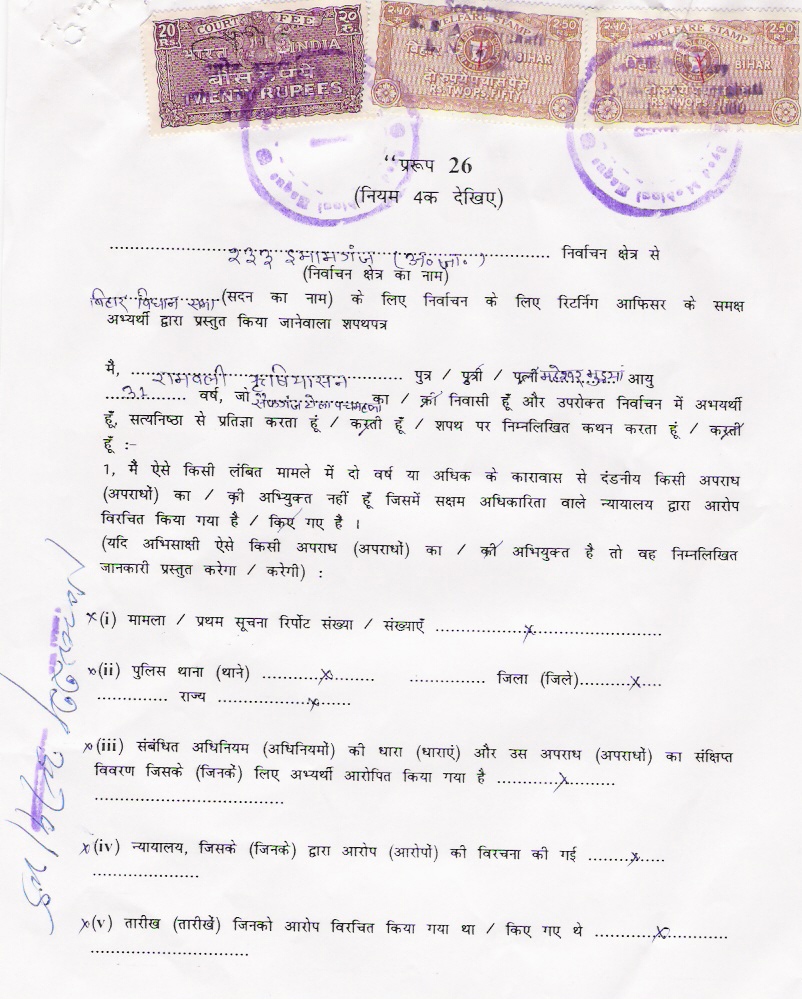 20 Rs. COURT FEE २० रु.
भारत INDIA
बीस रुपये
TWENTY RUPEES
२.५० WELFARE STAMP 2.50
बिहार BIHAR
दो रुपये पचास पैसे
RS. TWO PS. FIFTY
२.५० WELFARE STAMP 2.50
BIHAR
दो रुपये
RS. TWO PS. FIFTY
“प्ररूप 26
(नियम 4क देखिए)
२३३ इमामगंज (अ०जा०) निर्वाचन क्षेत्र से
(निर्वाचन क्षेत्र का नाम)
बिहार विधान सभा (सदन का नाम) के लिए निर्वाचन के लिए रिटर्निग आफिसर के समक्ष
अभ्यर्थी द्वारा प्रस्तुत किया जानेवाला शपथपत्र
मैं, रामबली ऋषियासन पुत्र / पुत्री / पत्नी आयु
31 वर्ष, जो का / की निवासी हूँ और उपरोक्त निर्वाचन में अभयर्थी
हूँ, सत्यनिष्ठा से प्रतिज्ञा करता हूं / करती हूँ / शपथ पर निम्नलिखित कथन करता हूं / करती
हूँ :-
1, मैं ऐसे किसी लंबित मामले में दो वर्ष या अधिक के कारावास से दंडनीय किसी अपराध
(अपराधों) का / की अभ्यिुक्त नहीं हूँ जिसमें सक्षम अधिकारिता वाले न्यायालय द्वारा आरोप
विरचित किया गया है / किए गए है ।
(यदि अभिसाक्षी ऐसे किसी अपराध (अपराधों) का / की अभियुक्त है तो वह निम्नलिखित
जानकारी प्रस्तुत करेगा / करेगी) :
x (i) मामला / प्रथम सूचना रिर्पोट संख्या / संख्याएँ ........x........
x (ii) पुलिस थाना (थाने) ........x........ ............... जिला (जिले)........x....
.............. राज्य ........x........
x (iii) संबंधित अधिनियम (अधिनियमों) की धारा (धाराएं) और उस अपराध (अपराधों) का संक्षिप्त
विवरण जिसके (जिनकें) लिए अभ्यर्थी आरोपित किया गया है ........x........
x (iv) न्यायालय, जिसके (जिनके) द्वारा आरोप (आरोपों) की विरचना की गई ........x......
x (v) तारीख (तारीखें) जिनको आरोप विरचित किया गया था / किए गए थे ........x........